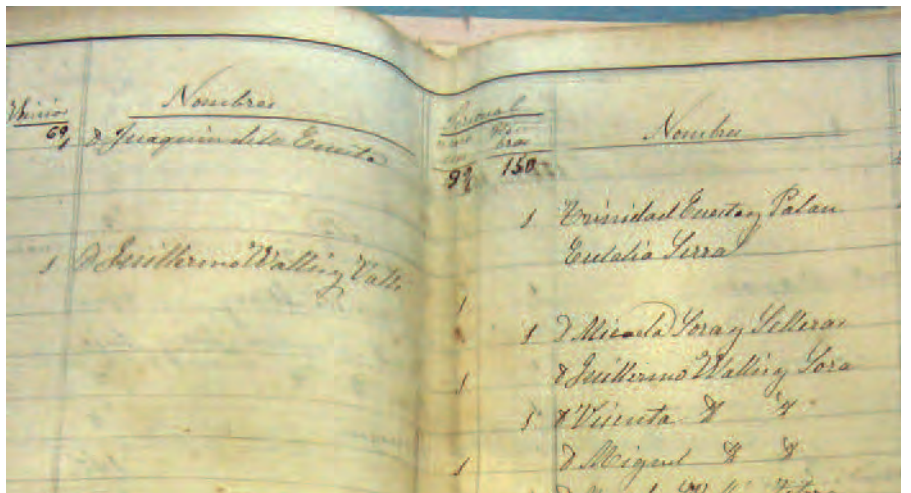 Nombres
69
D Juaquin de la Cuesta
1 D Guillermo Wallis y Valls
97 150
Nombres
1 Trinidad Cuesta y Palau
Eulalia Serra
1
1 D Micaela Lora y Selleras
1 D Guillermo Wallis y Lora
1 D Vicenta
1 D Miguel